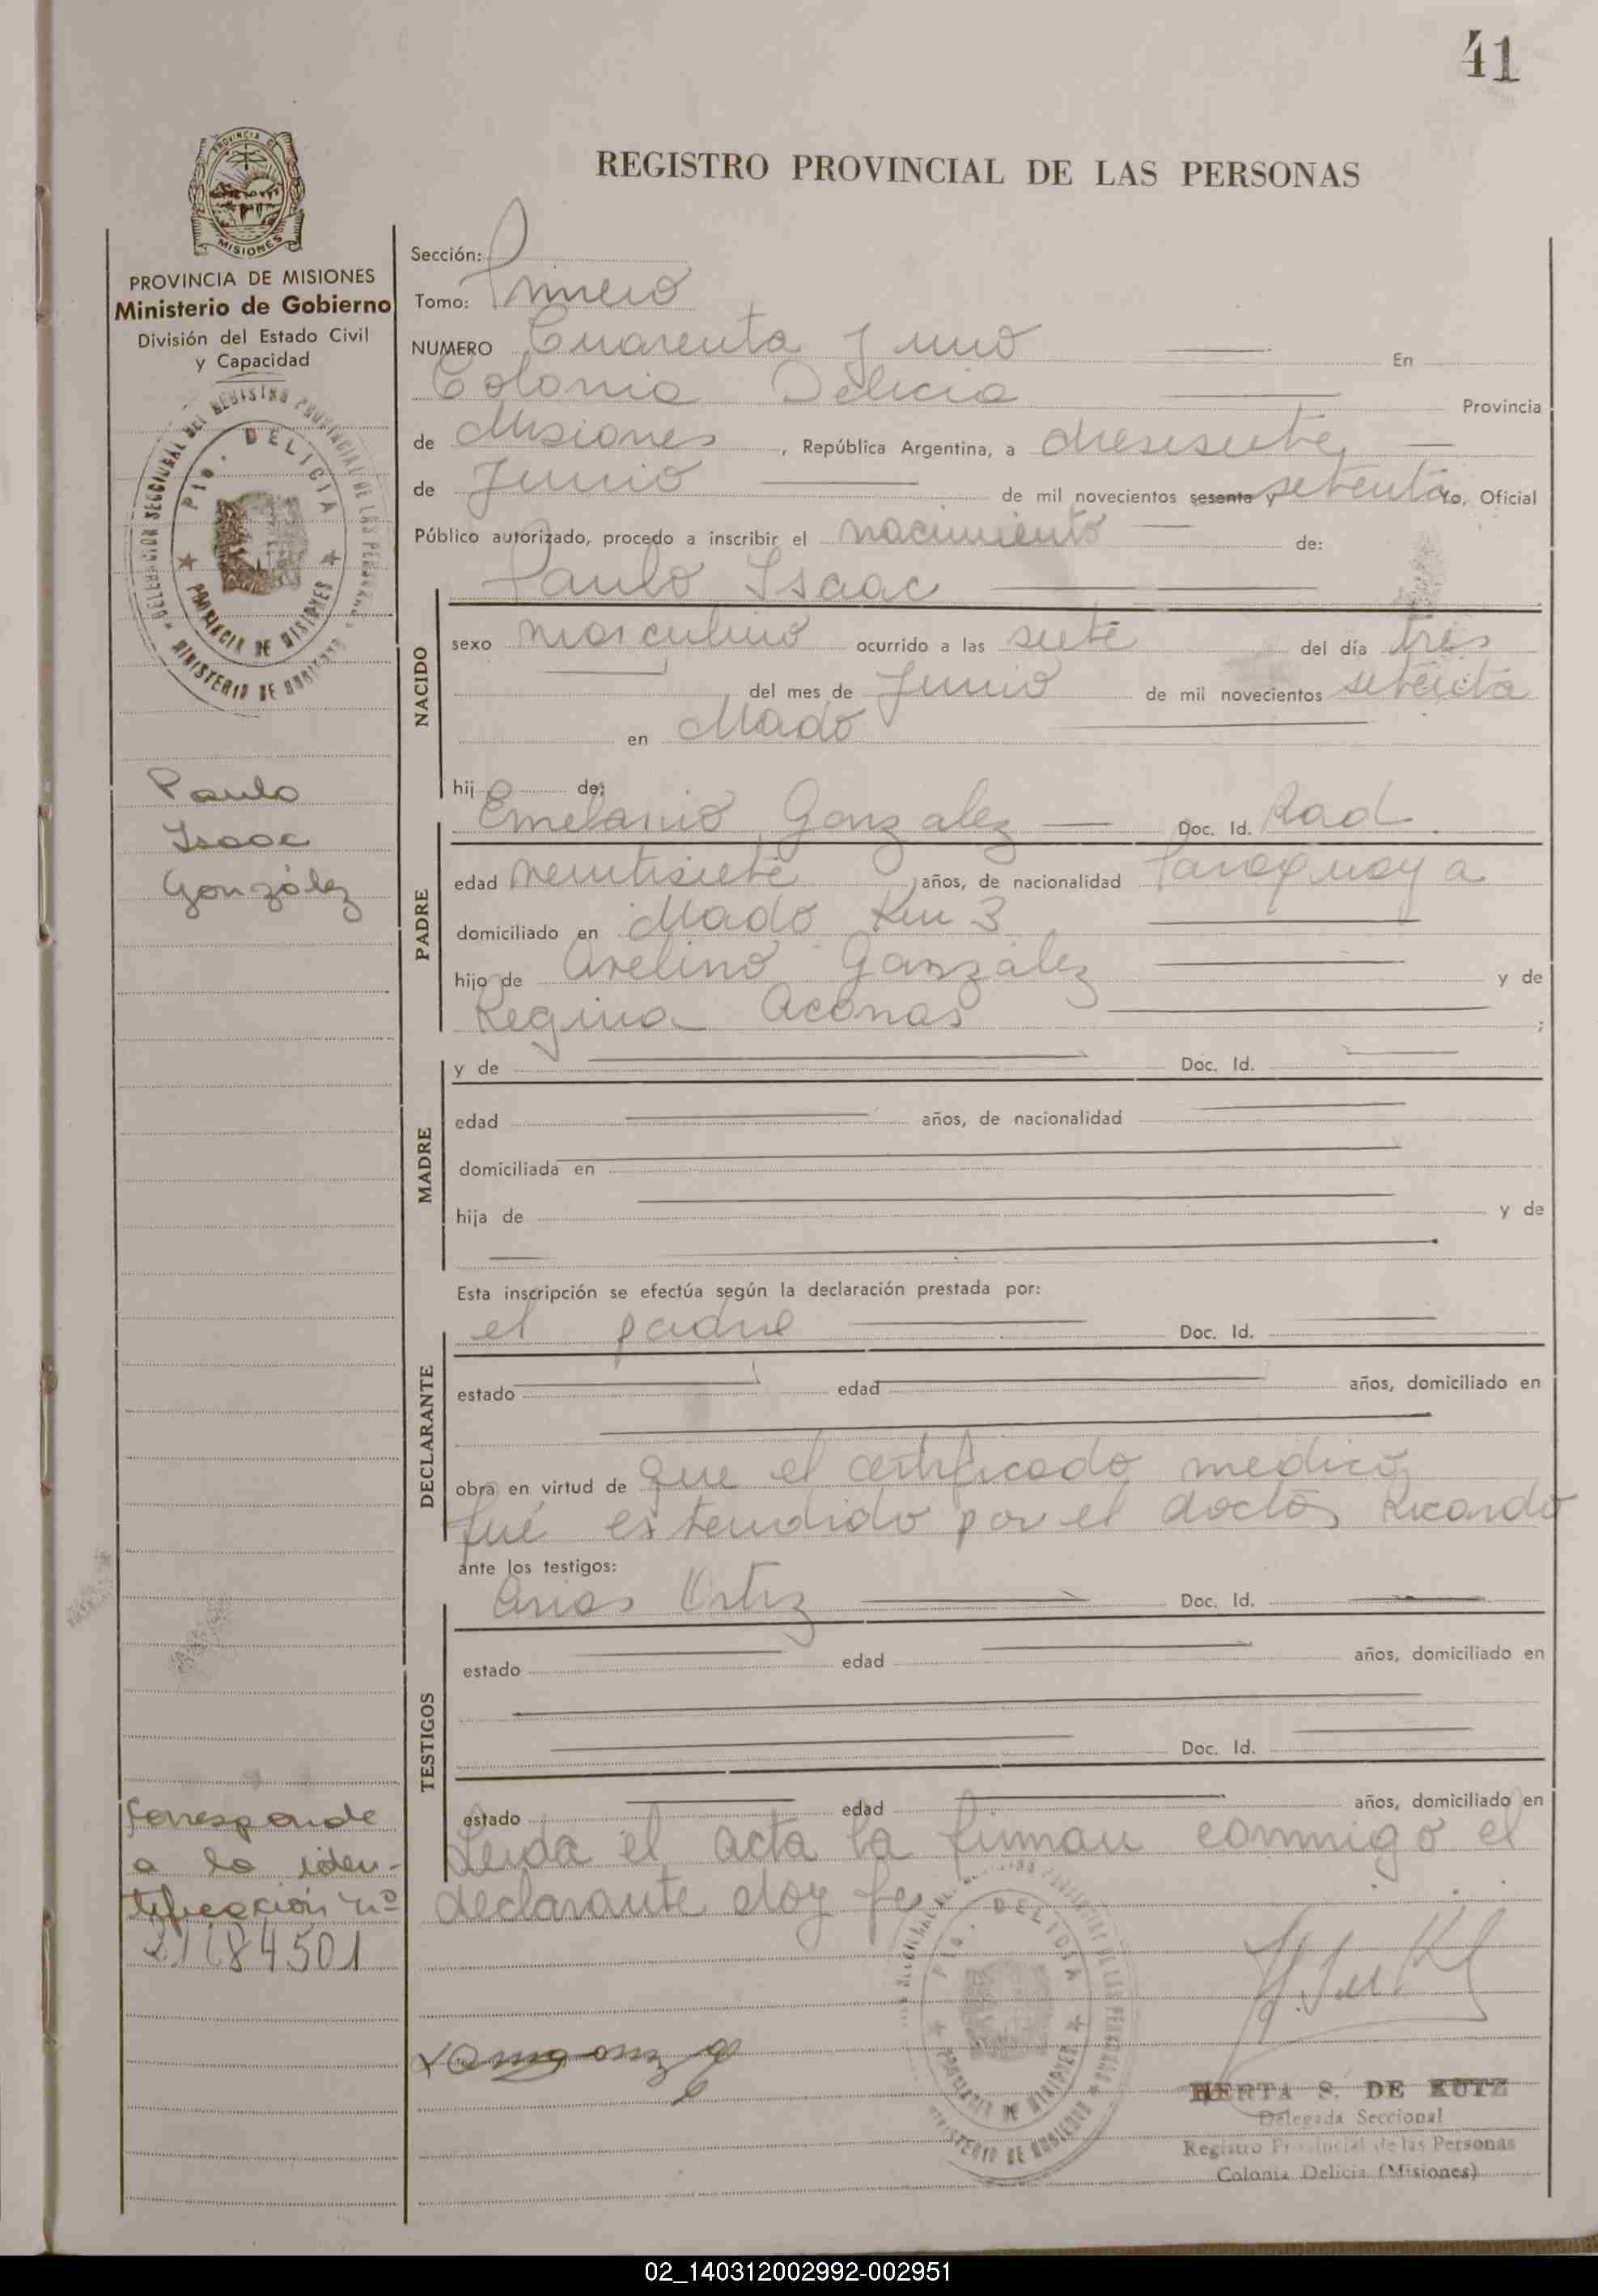 41
REGISTRO PROVINCIAL DE LAS PERSONAS
PROVINCIA DE MISIONES
Ministerio de Gobierno
División del Estado Civil
y Capacidad
DELEGACION SECCIONAL DEL REGISTRO PROVINCIAL DE LAS PERSONAS
Pto. DELICIA
PROVINCIA DE MISIONES
MINISTERIO DE GOBIERNO
Paulo
Isaac
González
Corresponde
a la iden-
tificación nº
Sección:
Tomo: Primero
NUMERO Cuarenta y uno En
Colonia Delicia Provincia
de Misiones, República Argentina, a diesisiete
de Junio de mil novecientos sesenta y setenta Yo, Oficial
Público autorizado, procedo a inscribir el nacimiento de:
Paulo Isaac
NACIDO
sexo masculino ocurrido a las siete del día tres
del mes de Junio de mil novecientos setenta
en Mado
hijo de:
PADRE
Emelanio González Doc. Id.
edad veintisiete años, de nacionalidad Paraguaya
domiciliado en Mado Km 3
hijo de Avelino González y de
Regina
MADRE
y de Doc. Id.
edad años, de nacionalidad
domiciliada en
hija de y de
Esta inscripción se efectúa según la declaración prestada por:
DECLARANTE
el padre Doc. Id.
estado edad años, domiciliado en
obra en virtud de que el certificado medico
fué estendido por el doctor Ricardo
ante los testigos:
TESTIGOS
Arias Ortiz Doc. Id.
estado edad años, domiciliado en
Doc. Id.
estado edad años, domiciliado en
Leida el acta la firman conmigo el
declarante doy fe
Pto. DELICIA
PROVINCIA DE MISIONES
MINISTERIO DE GOBIERNO
HERTA S. DE KUTZ
Delegada Seccional
Registro Provincial de las Personas
Colonia Delicia (Misiones)
02_140312002992-002951